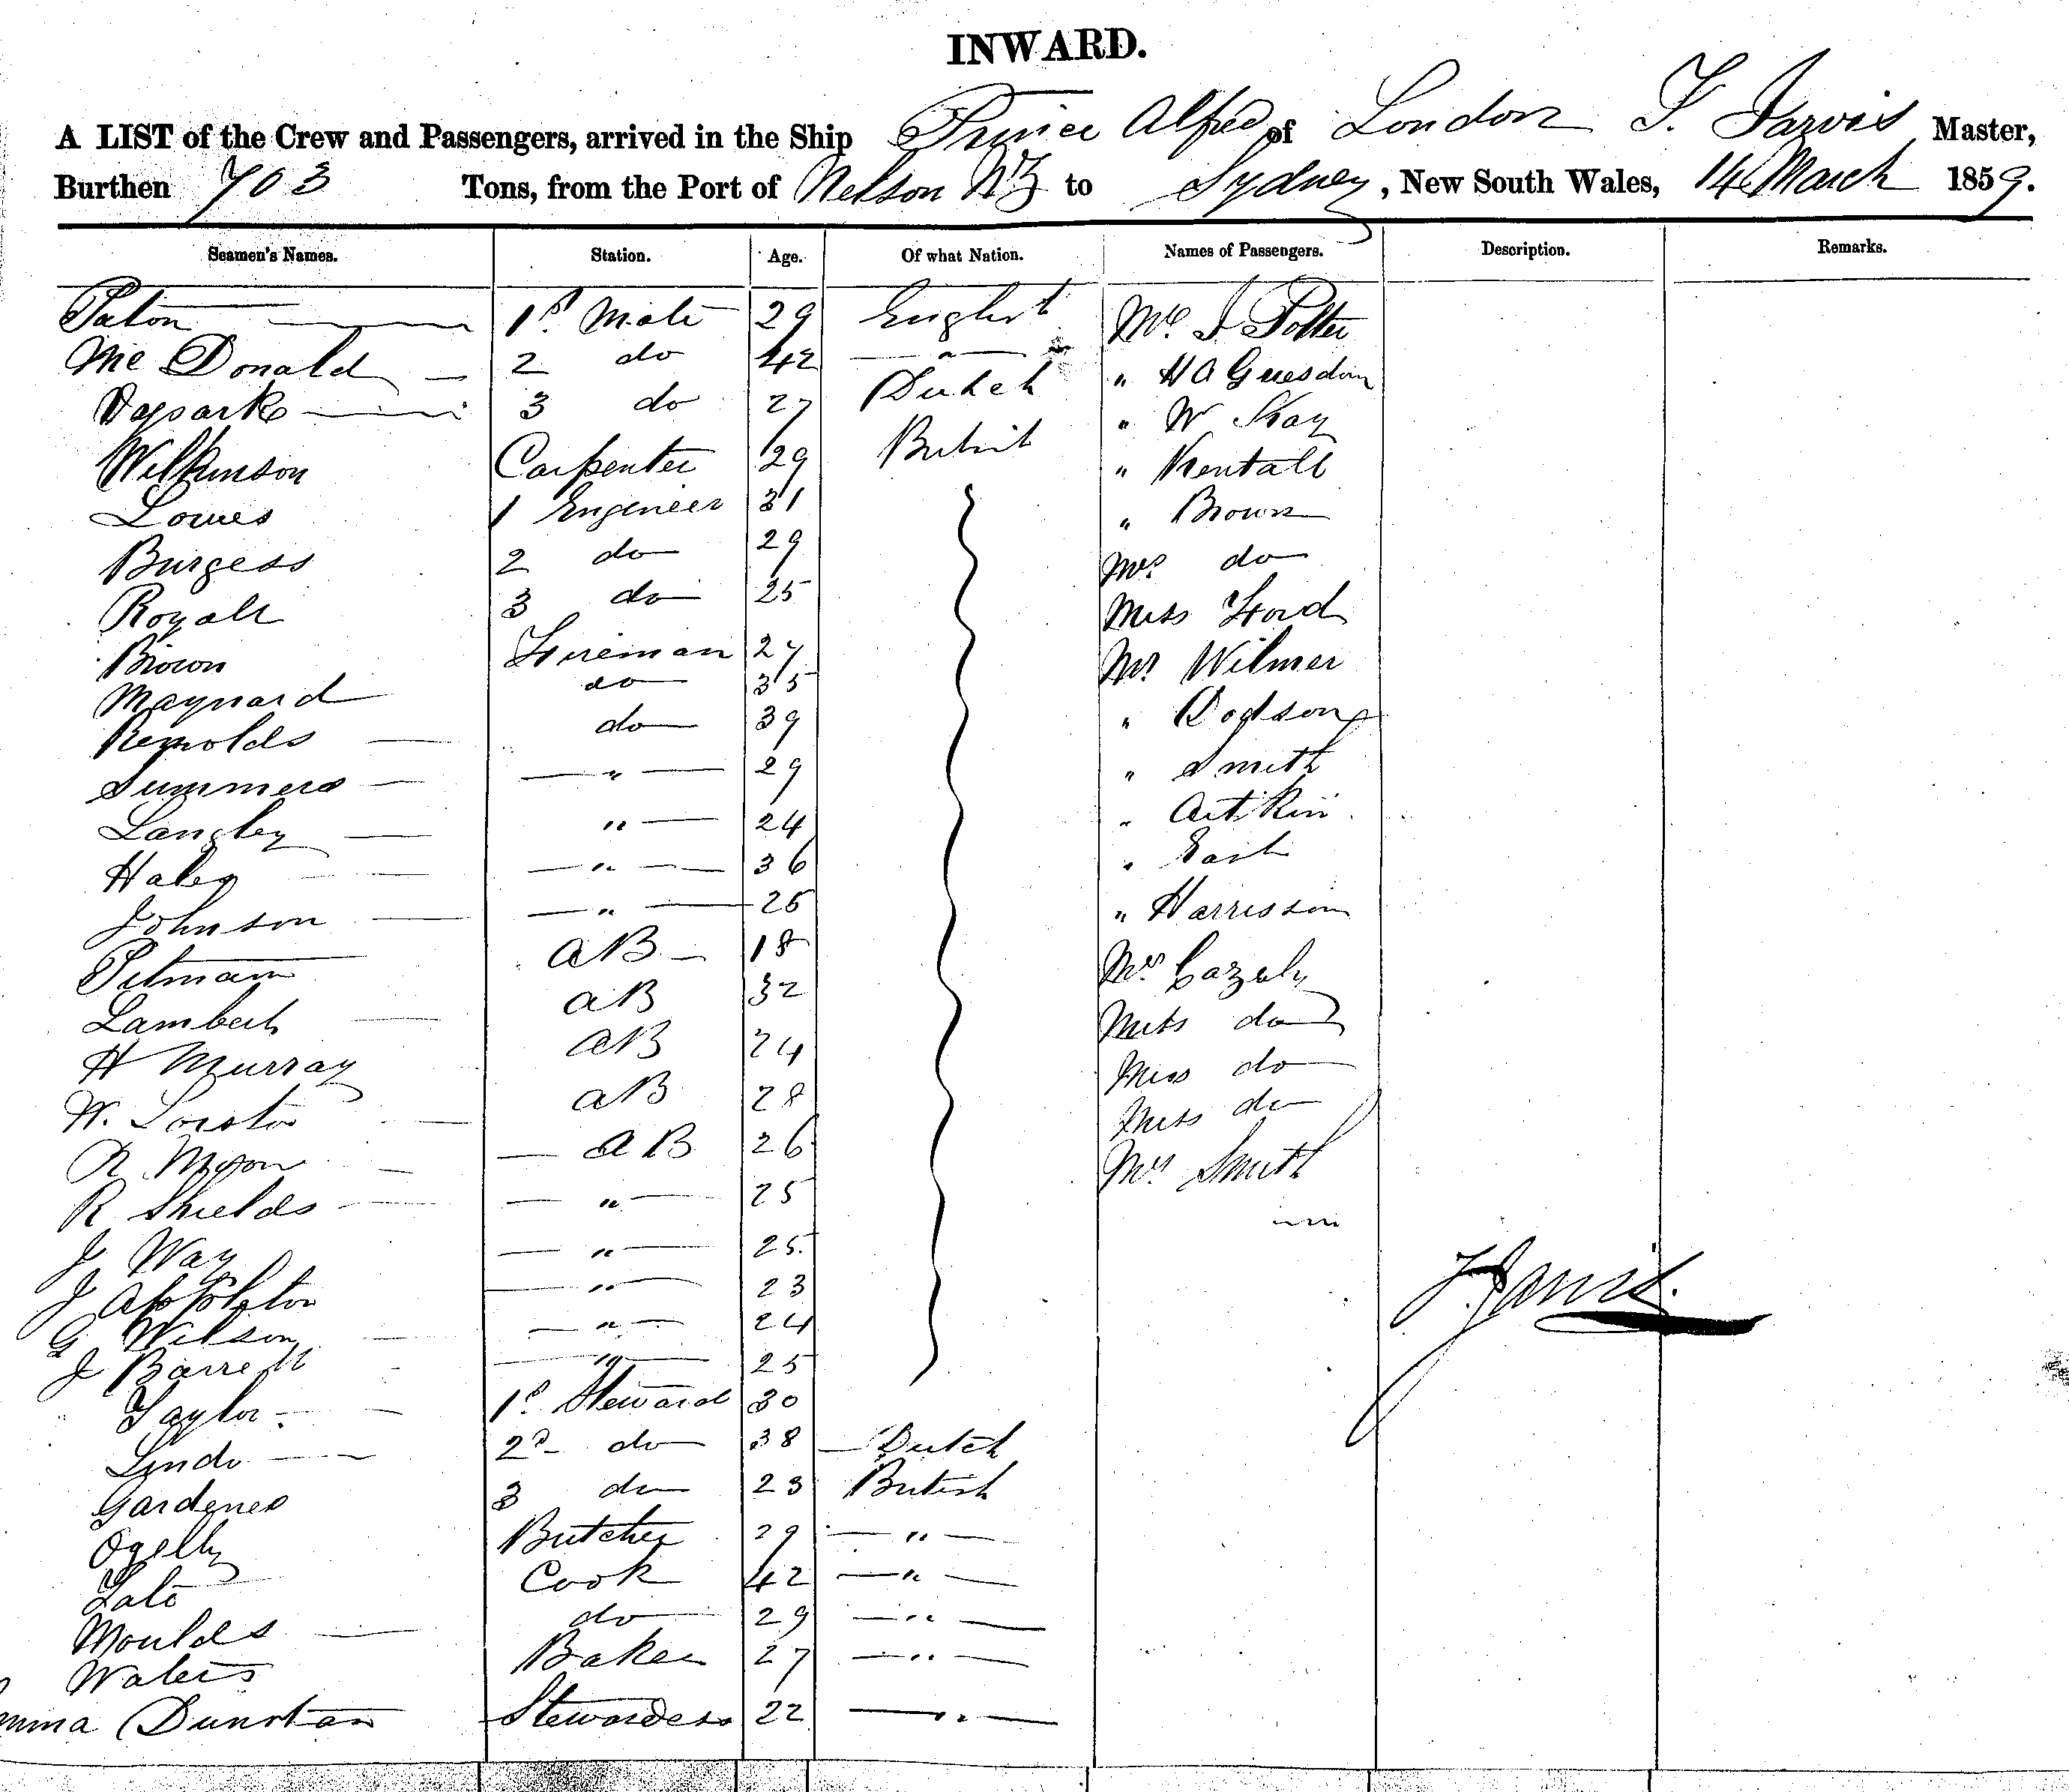 INWARD.
A LIST of the Crew and Passengers, arrived in the Ship Prince Alfred of London F. Jarvis Master,
Burthen 703 Tons, from the Port of Nelson NZ to Sydney, New South Wales, 14 March 1859.
Seamen's Names. Station. Age. Of what Nation. Names of Passengers. Description. Remarks.
Paton 1st Mate 29 English Mr. J Potter
Mc Donald 2 do 42 — " — " H A Guesdon
3 do 27 Dutch " W Kay
Wilkinson Carpenter 29 British "
Lowes 1 Engineer 31 " Brown
Burgess 2 do 29 Mrs do
Royall 3 do 25 Miss Ford
Brown Fireman 27 Mr Wilmer
Maynard do 35 " Dodson
Renolds do 39 " Smith
Summers — " — 29 " Aitkin
Langley " — 24 "
Haley — " — 36 " Harrisson
Johnson — " — 26
Pitman AB — 18 Mrs Cazaly
Lambert AB 32 Miss do
H Murray AB 24 Miss do
W. AB 28 Miss do
R Myon — AB 26 Mrs Smith
R Shields — " — 25
J Way — " — 25
J Appleton — " — 23
G Wilson — " — 24
J Barrett — " — 25
F. Jarvis.
Taylor 1st Steward 30
Lyndo 2d do 38 — Dutch
Gardener 3 do 23 British
Ogelly Butcher 29 — " —
Late Cook 42 — " —
Moulds do 29 — " —
Waters Baker 27 — " —
mma Dunstan Stewardess 22 — " —